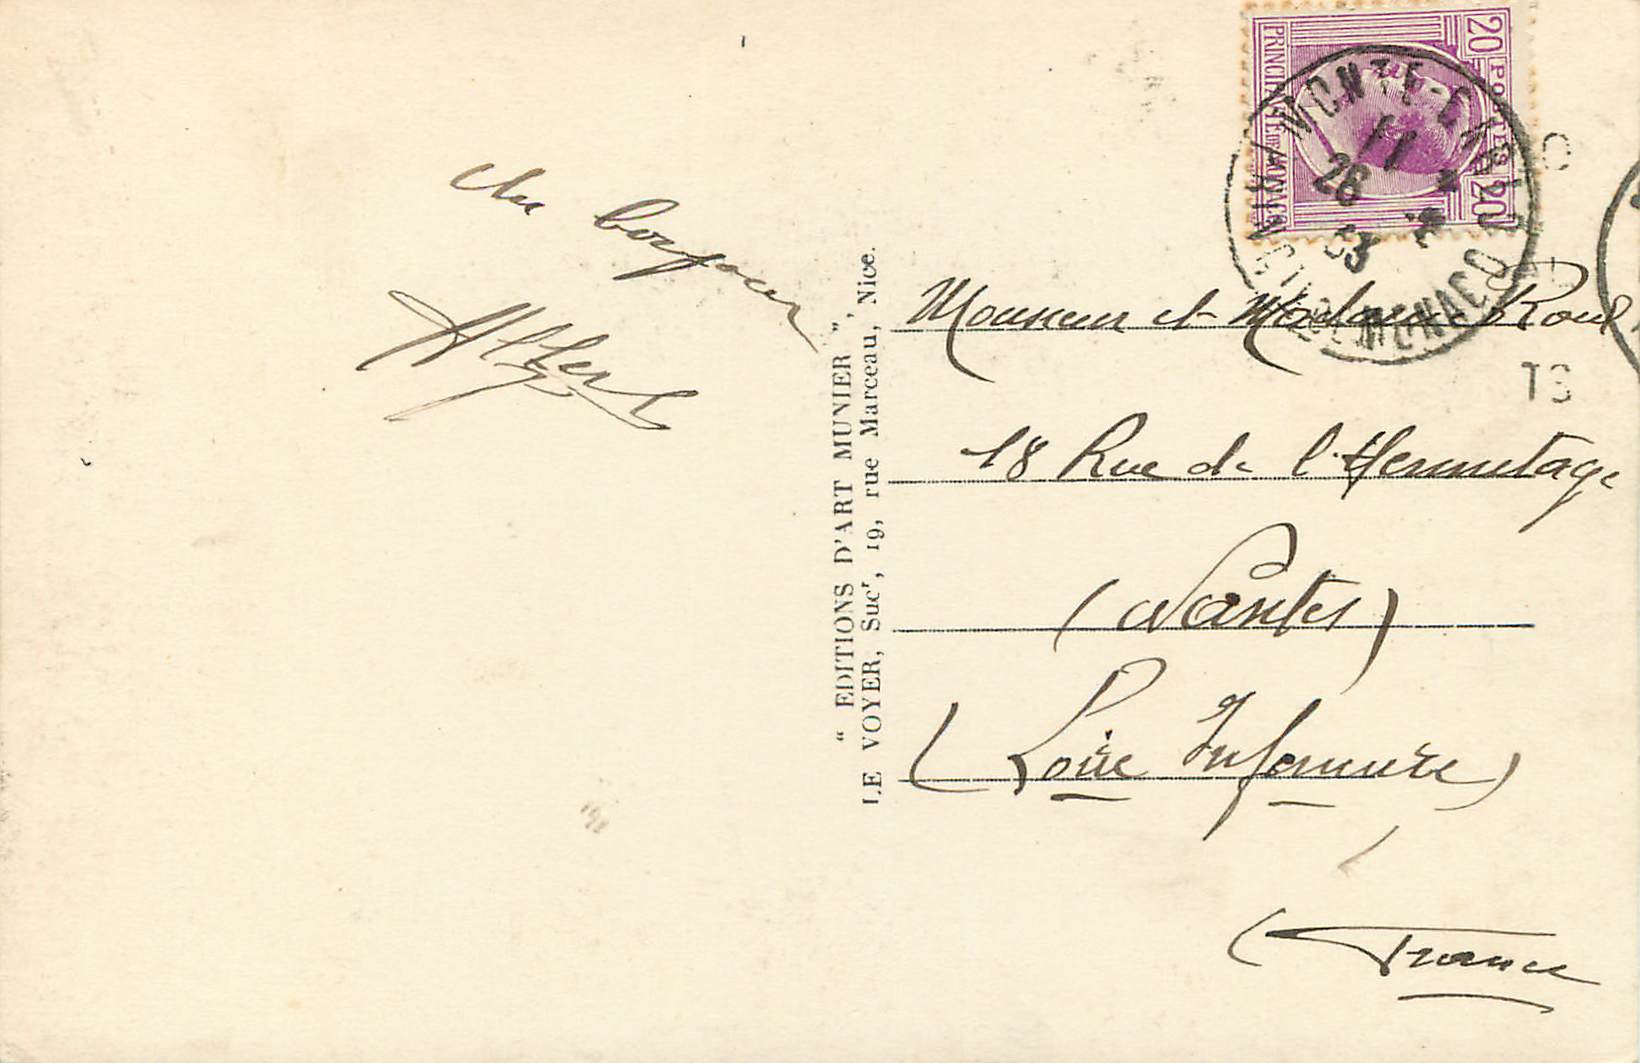 bonjour
Albert
" EDITIONS D'ART MUNIER ",
LE VOYER, Sucʳ, 19, rue Marceau, Nice.
20 POSTES 20
PRINCIPAUTÉ DE MONACO
MONTE-CARLO
11
26
33
PRINCIPTE DE MONACO
Monsieur et Madame
18 Rue de l'Hermitage
(Nantes)
(Loire Inférieure)
(France